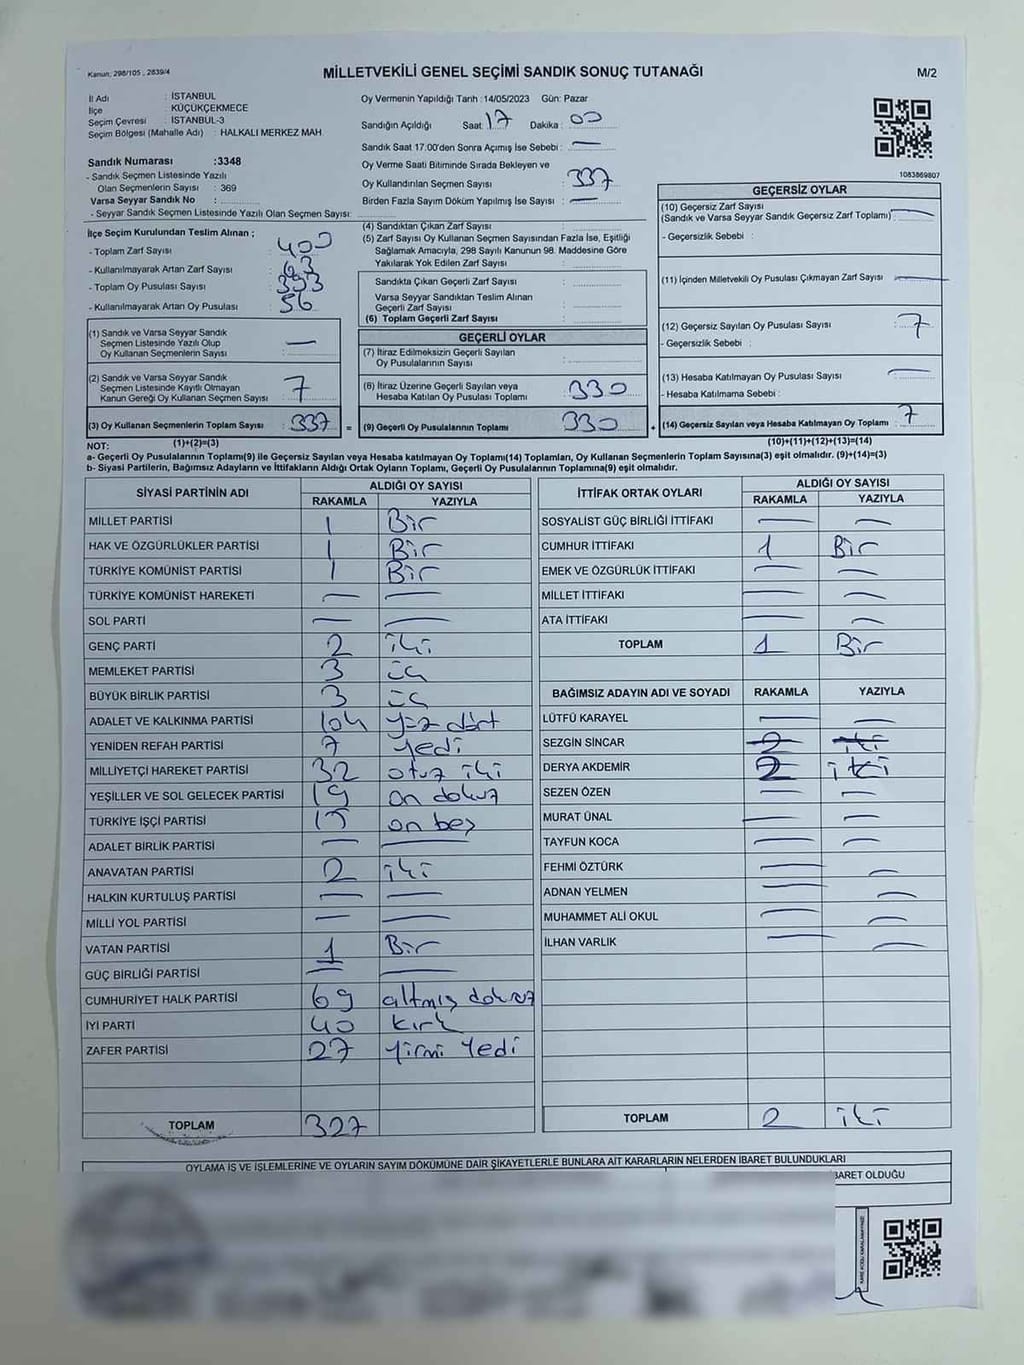 Kanun: 298/105 , 2839/4
MİLLETVEKİLİ GENEL SEÇİMİ SANDIK SONUÇ TUTANAĞI
M/2
İl Adı : İSTANBUL
İlçe : KÜÇÜKÇEKMECE
Seçim Çevresi : İSTANBUL-3
Seçim Bölgesi (Mahalle Adı) : HALKALI MERKEZ MAH.
Sandık Numarası :3348
- Sandık Seçmen Listesinde Yazılı
Olan Seçmenlerin Sayısı : 369
Varsa Seyyar Sandık No :
- Seyyar Sandık Seçmen Listesinde Yazılı Olan Seçmen Sayısı:
Oy Vermenin Yapıldığı Tarih :14/05/2023 Gün: Pazar
Sandığın Açıldığı Saat: 17 Dakika : 00
Sandık Saat 17.00'den Sonra Açımış İse Sebebi : —
Oy Verme Saati Bitiminde Sırada Bekleyen ve
Oy Kullandırılan Seçmen Sayısı : 337
Birden Fazla Sayım Döküm Yapılmış İse Sayısı : —
1083869807
İlçe Seçim Kurulundan Teslim Alınan ;
- Toplam Zarf Sayısı : 400
- Kullanılmayarak Artan Zarf Sayısı : 63
- Toplam Oy Pusulası Sayısı : 393
- Kullanılmayarak Artan Oy Pusulası : 56
(1) Sandık ve Varsa Seyyar Sandık
Seçmen Listesinde Yazılı Olup
Oy Kullanan Seçmenlerin Sayısı : —
(2) Sandık ve Varsa Seyyar Sandık
Seçmen Listesinde Kayıtlı Olmayan
Kanun Gereği Oy Kullanan Seçmen Sayısı : 7
(3) Oy Kullanan Seçmenlerin Toplam Sayısı : 337 =
(4) Sandıktan Çıkan Zarf Sayısı :
(5) Zarf Sayısı Oy Kullanan Seçmen Sayısından Fazla İse, Eşitliği
Sağlamak Amacıyla, 298 Sayılı Kanunun 98. Maddesine Göre
Yakılarak Yok Edilen Zarf Sayısı :
Sandıkta Çıkan Geçerli Zarf Sayısı :
Varsa Seyyar Sandıktan Teslim Alınan
Geçerli Zarf Sayısı :
(6) Toplam Geçerli Zarf Sayısı :
GEÇERLİ OYLAR
(7) İtiraz Edilmeksizin Geçerli Sayılan
Oy Pusulalarının Sayısı :
(8) İtiraz Üzerine Geçerli Sayılan veya
Hesaba Katılan Oy Pusulası Toplamı : 330
(9) Geçerli Oy Pusulalarının Toplamı : 330 +
GEÇERSİZ OYLAR
(10) Geçersiz Zarf Sayısı
(Sandık ve Varsa Seyyar Sandık Geçersiz Zarf Toplamı): —
- Geçersizlik Sebebi :
(11) İçinden Milletvekili Oy Pusulası Çıkmayan Zarf Sayısı : —
(12) Geçersiz Sayılan Oy Pusulası Sayısı : 7
- Geçersizlik Sebebi :
(13) Hesaba Katılmayan Oy Pusulası Sayısı : —
- Hesaba Katılmama Sebebi :
(14) Geçersiz Sayılan veya Hesaba Katılmayan Oy Toplamı : 7
NOT: (1)+(2)=(3) (10)+(11)+(12)+(13)=(14)
a- Geçerli Oy Pusulalarının Toplamı(9) ile Geçersiz Sayılan veya Hesaba katılmayan Oy Toplamı(14) Toplamları, Oy Kullanan Seçmenlerin Toplam Sayısına(3) eşit olmalıdır. (9)+(14)=(3)
b- Siyasi Partilerin, Bağımsız Adayların ve İttifakların Aldığı Ortak Oyların Toplamı, Geçerli Oy Pusulalarının Toplamına(9) eşit olmalıdır.
SİYASİ PARTİNİN ADI ALDIĞI OY SAYISI
RAKAMLA YAZIYLA
MİLLET PARTİSİ 1 Bir
HAK VE ÖZGÜRLÜKLER PARTİSİ 1 Bir
TÜRKİYE KOMÜNİST PARTİSİ 1 Bir
TÜRKİYE KOMÜNİST HAREKETİ — —
SOL PARTİ — —
GENÇ PARTİ 2 iki
MEMLEKET PARTİSİ 3 üç
BÜYÜK BİRLİK PARTİSİ 3 üç
ADALET VE KALKINMA PARTİSİ 104 yüz dört
YENİDEN REFAH PARTİSİ 7 yedi
MİLLİYETÇİ HAREKET PARTİSİ 32 otuz iki
YEŞİLLER VE SOL GELECEK PARTİSİ 19 on dokuz
TÜRKİYE İŞÇİ PARTİSİ 15 on beş
ADALET BİRLİK PARTİSİ — —
ANAVATAN PARTİSİ 2 iki
HALKIN KURTULUŞ PARTİSİ — —
MİLLİ YOL PARTİSİ — —
VATAN PARTİSİ 1 Bir
GÜÇ BİRLİĞİ PARTİSİ — —
CUMHURİYET HALK PARTİSİ 69 altmış dokuz
İYİ PARTİ 40 kırk
ZAFER PARTİSİ 27 yirmi yedi
TOPLAM 327
İTTİFAK ORTAK OYLARI ALDIĞI OY SAYISI
RAKAMLA YAZIYLA
SOSYALİST GÜÇ BİRLİĞİ İTTİFAKI — —
CUMHUR İTTİFAKI 1 Bir
EMEK VE ÖZGÜRLÜK İTTİFAKI — —
MİLLET İTTİFAKI — —
ATA İTTİFAKI — —
TOPLAM 1 Bir
BAĞIMSIZ ADAYIN ADI VE SOYADI RAKAMLA YAZIYLA
LÜTFÜ KARAYEL — —
SEZGİN SİNCAR 2 iki
DERYA AKDEMİR 2 iki
SEZEN ÖZEN — —
MURAT ÜNAL — —
TAYFUN KOCA — —
FEHMİ ÖZTÜRK — —
ADNAN YELMEN — —
MUHAMMET ALİ OKUL — —
İLHAN VARLIK — —
TOPLAM 2 iki
OYLAMA İŞ VE İŞLEMLERİNE VE OYLARIN SAYIM DÖKÜMÜNE DAİR ŞİKAYETLERLE BUNLARA AİT KARARLARIN NELERDEN İBARET BULUNDUKLARI
İBARET OLDUĞU